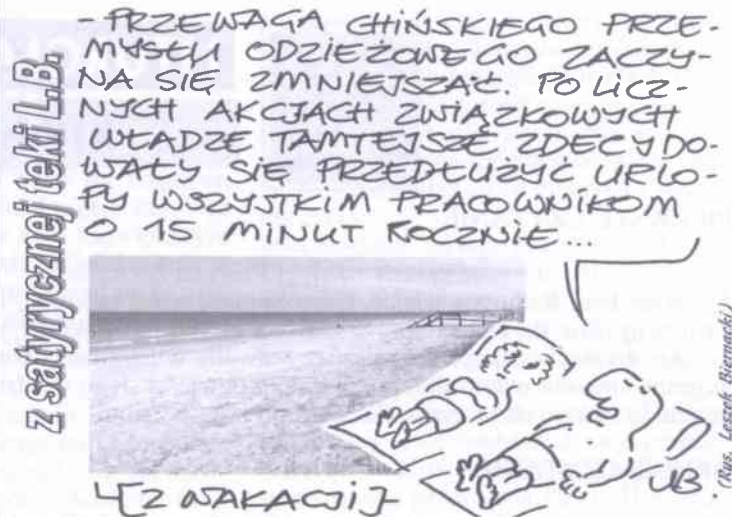 z satyrycznej teki L.B.
- PRZEWAGA CHIŃSKIEGO PRZE-
MYSŁU ODZIEŻOWEGO ZACZY-
NA SIĘ ZMNIEJSZAĆ. PO LICZ-
NYCH AKCJACH ZWIĄZKOWYCH
WŁADZE TAMTEJSZE ZDECYDO-
WAŁY SIĘ PRZEDŁUŻYĆ URLO-
PY WSZYSTKIM PRACOWNIKOM
O 15 MINUT ROCZNIE...
[Z WAKACJI]
LB.
(Rys. Leszek Biernacki)